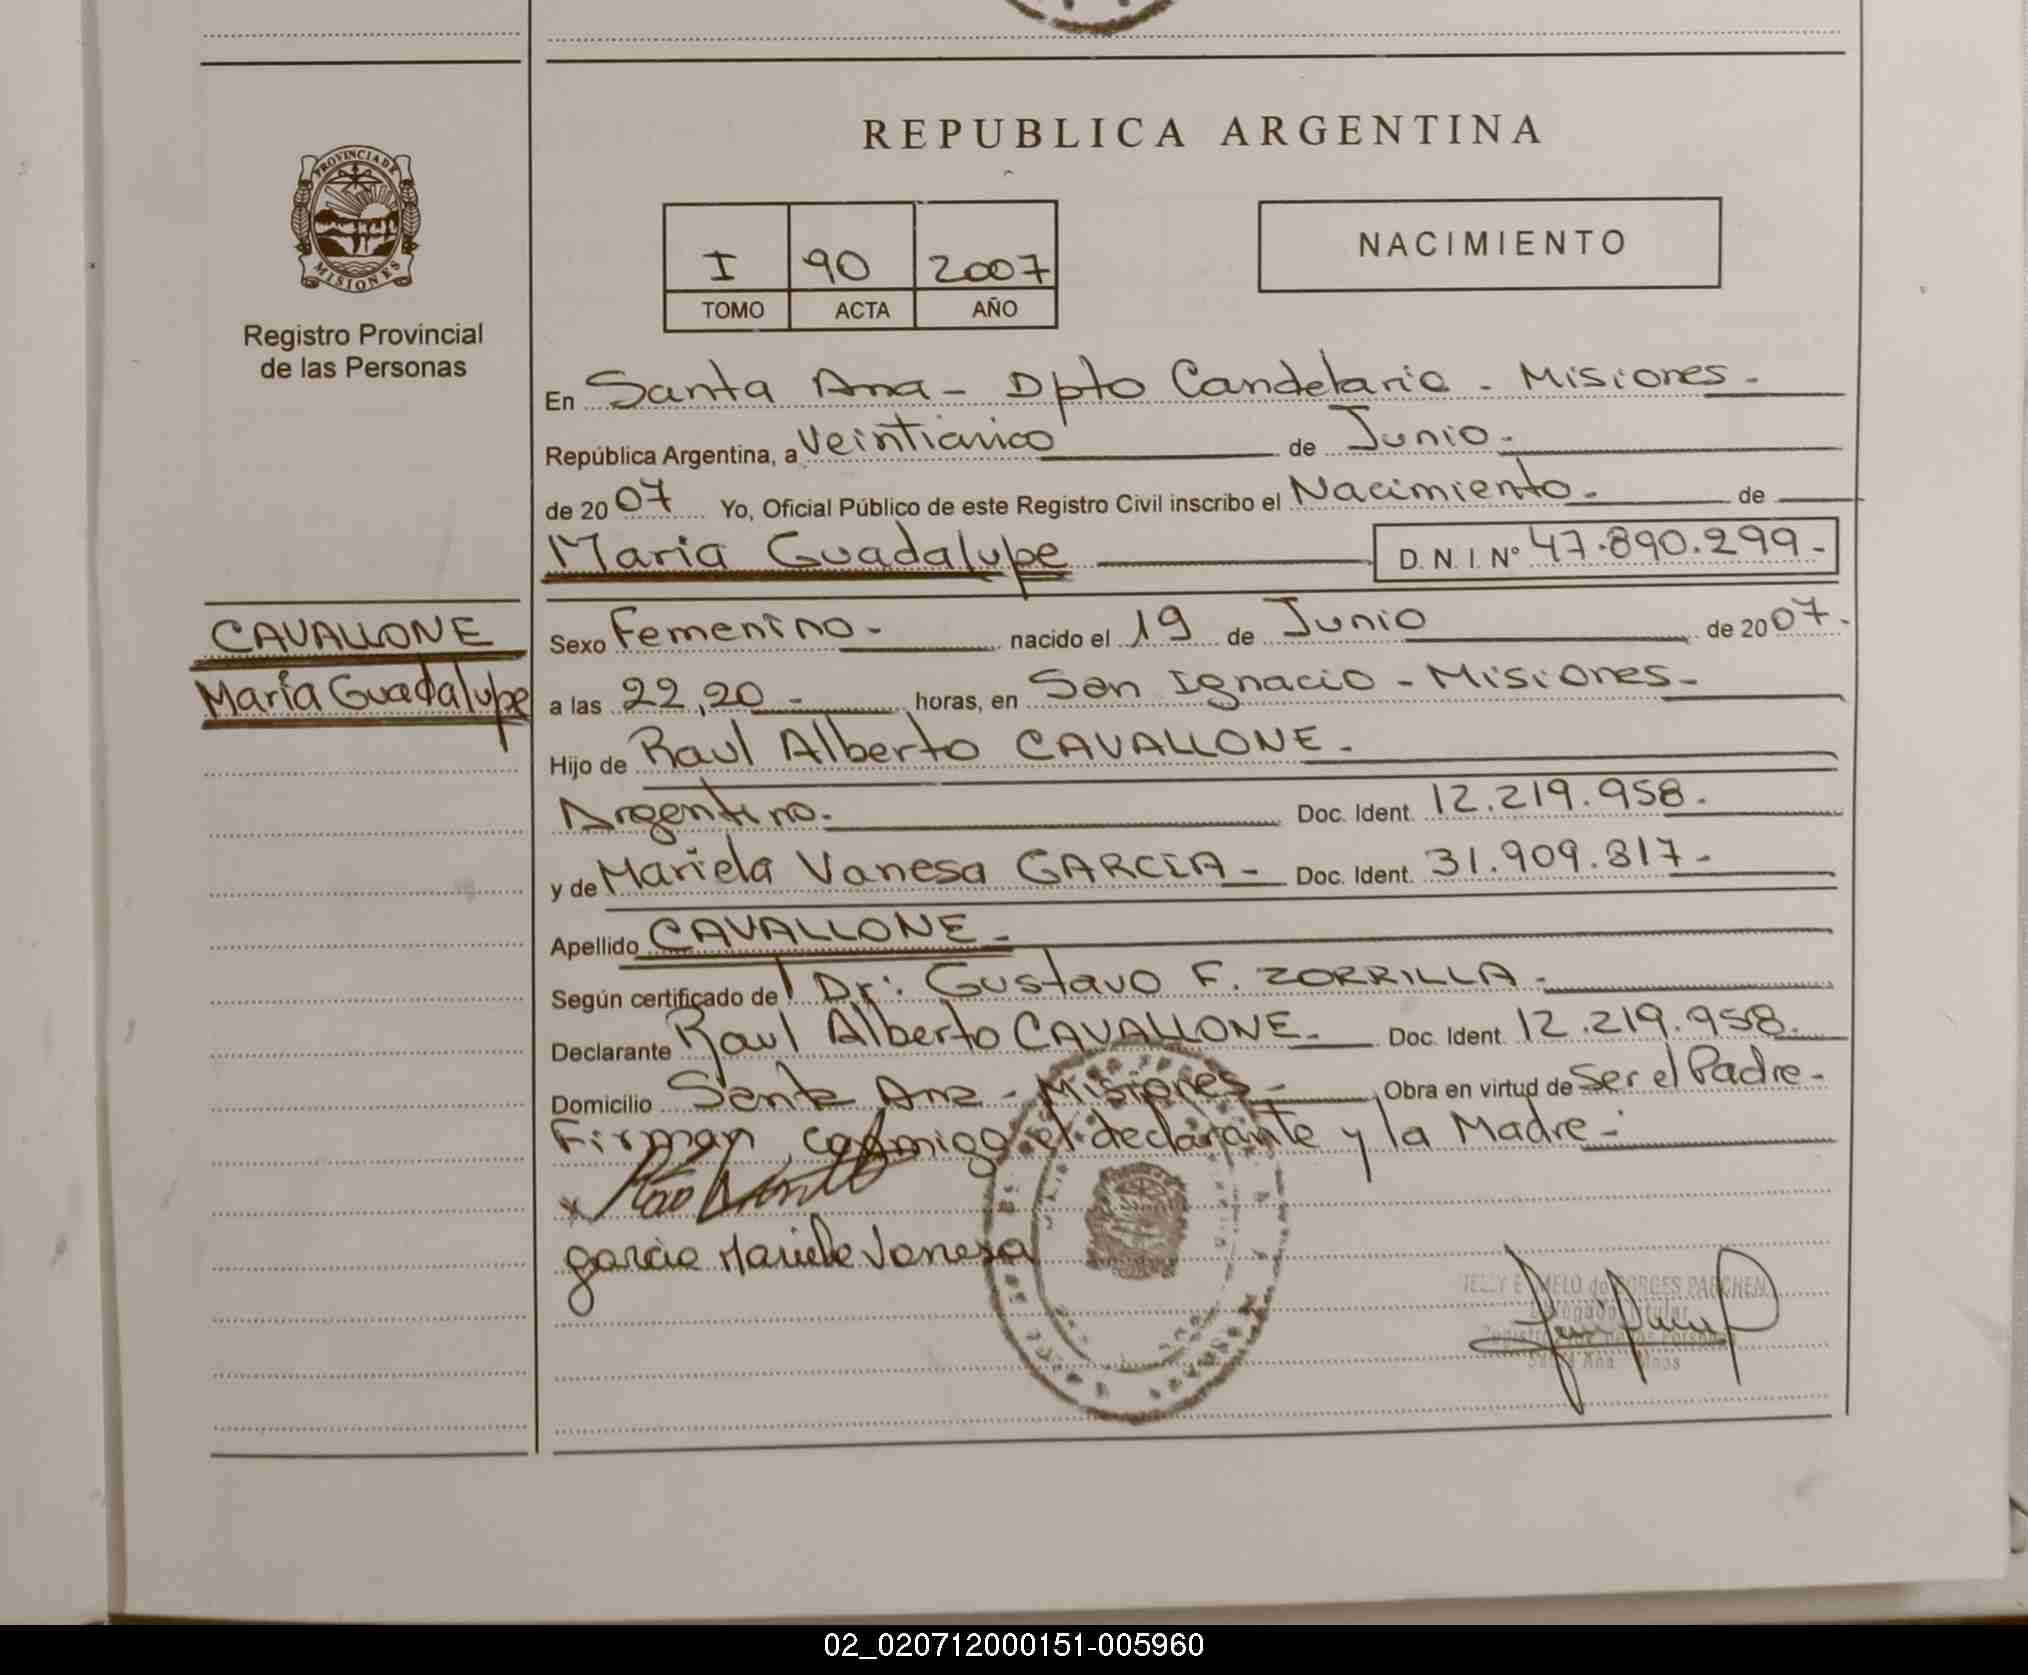 REPUBLICA ARGENTINA
PROVINCIA DE
MISIONES
Registro Provincial
de las Personas
I 90 2007
TOMO ACTA AÑO
NACIMIENTO
En Santa Ana - Dpto Candelaria - Misiones -
República Argentina, a Veinticinco de Junio -
de 2007 Yo, Oficial Público de este Registro Civil inscribo el Nacimiento - de
Maria Guadalupe D. N. I. Nº 47.890.299 -
CAVALLONE
María Guadalupe
Sexo Femenino - nacido el 19 de Junio de 2007 -
a las 22,20 - horas, en San Ignacio - Misiones -
Hijo de Raul Alberto CAVALLONE -
Argentino - Doc. Ident. 12.219.958 -
y de Mariela Vanesa GARCIA - Doc. Ident. 31.909.817 -
Apellido CAVALLONE -
Según certificado de Dr: Gustavo F. ZORRILLA -
Declarante Raul Alberto CAVALLONE - Doc. Ident. 12.219.958 -
Domicilio Santa Ana - Misiones - Obra en virtud de Ser el Padre -
Firman conmigo el declarante y la Madre -
garcia Mariela Vanesa
MELO de BORGES PARCHEN
Delegado Titular
Santa Ana Mnes
02_020712000151-005960